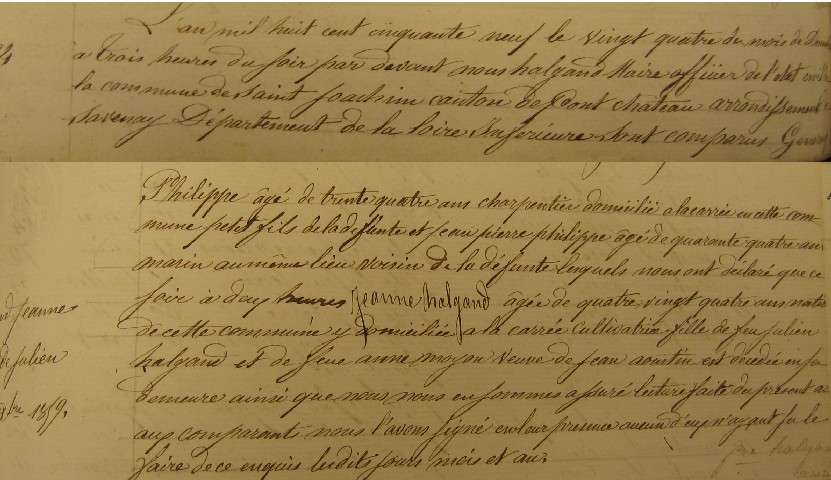 L'an mil huit cent cinquante neuf le vingt quatre du mois de
à trois heures du soir par devant nous halgand Maire officier de l'état civil
la commune de Saint Joachim canton de Pont Chateau arrondissement
Savenay Département de la loire Inférieure sont comparus
Philippe âgé de trente quatre ans charpentier domicilié a la carrée en cette com-
mune petit fils de la défunte et jean pierre philippe âgé de quarante quatre ans
marin au même lieu voisin de la défunte lesquels nous ont déclaré que ce
soir à deux heures Jeanne halgand âgée de quatre vingt quatre ans native
de cette commune y domiciliée a la carrée cultivatrice fille de feu julien
halgand et de feue anne moyon veuve de jean aoustin est décédée en sa
demeure ainsi que nous nous en sommes assuré lecture faite du présent
aux comparant nous l'avons signé en leur présence aucun d'eux n'ayant su le
faire de ce enquis lesdits jours mois et an.
Jeanne
de julien
1859.
halgand